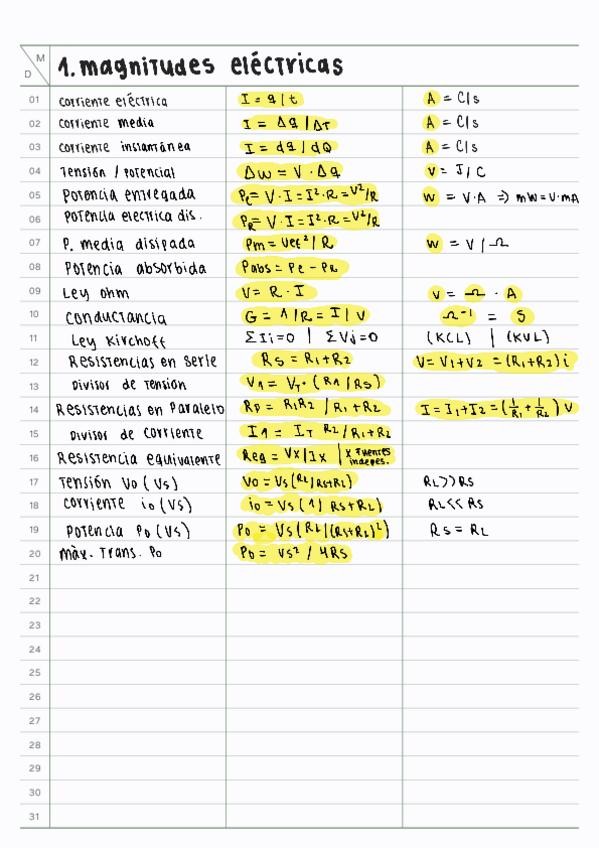 M
D
1. magnitudes eléctricas
01 corriente eléctrica I = q/t A = C/s
02 corriente media I = Δq/ΔT A = C/s
03 corriente instantánea I = dq/dQ A = C/s
04 Tensión / potencial Δw = V · Δq V = J/C
05 Potencia entregada Pe = V·I = I²·R = V²/R W = V·A => mW = V·mA
06 Potencia electrica dis. PR = V·I = I²·R = V²/R
07 P. media disipada Pm = Vef²/R W = V/Ω
08 Potencia absorbida Pabs = Pe - PR
09 Ley ohm V = R · I V = Ω · A
10 Conductancia G = 1/R = I/V Ω⁻¹ = S
11 Ley Kirchoff ΣIi=0 | ΣVj=0 (KCL) | (KVL)
12 Resistencias en Serie Rs = R1+R2 V = V1+V2 = (R1+R2) i
13 Divisor de tensión V1 = VT·(R1/Rs)
14 Resistencias en Paralelo RP = R1R2 / R1+R2 I = I1+I2 = (1/R1 + 1/R2) V
15 Divisor de corriente I1 = IT R2/R1+R2
16 Resistencia equivalente Req = Vx/Ix | x Fuentes indepes.
17 Tensión Vo (Vs) Vo = Vs (RL/Rs+RL) RL>>Rs
18 corriente io (Vs) io = Vs (1/Rs+RL) RL<<Rs
19 Potencia Po (Vs) Po = Vs (RL/(Rs+RL)²) Rs = RL
20 màx. Trans. Po Po = Vs² / 4Rs
21
22
23
24
25
26
27
28
29
30
31